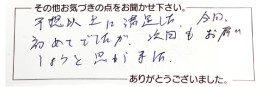 その他お気づきの点をお聞かせ下さい。
予想以上に満足した。今回、
初めてでしたが、次回もお願い
しようと思います。
ありがとうございました。